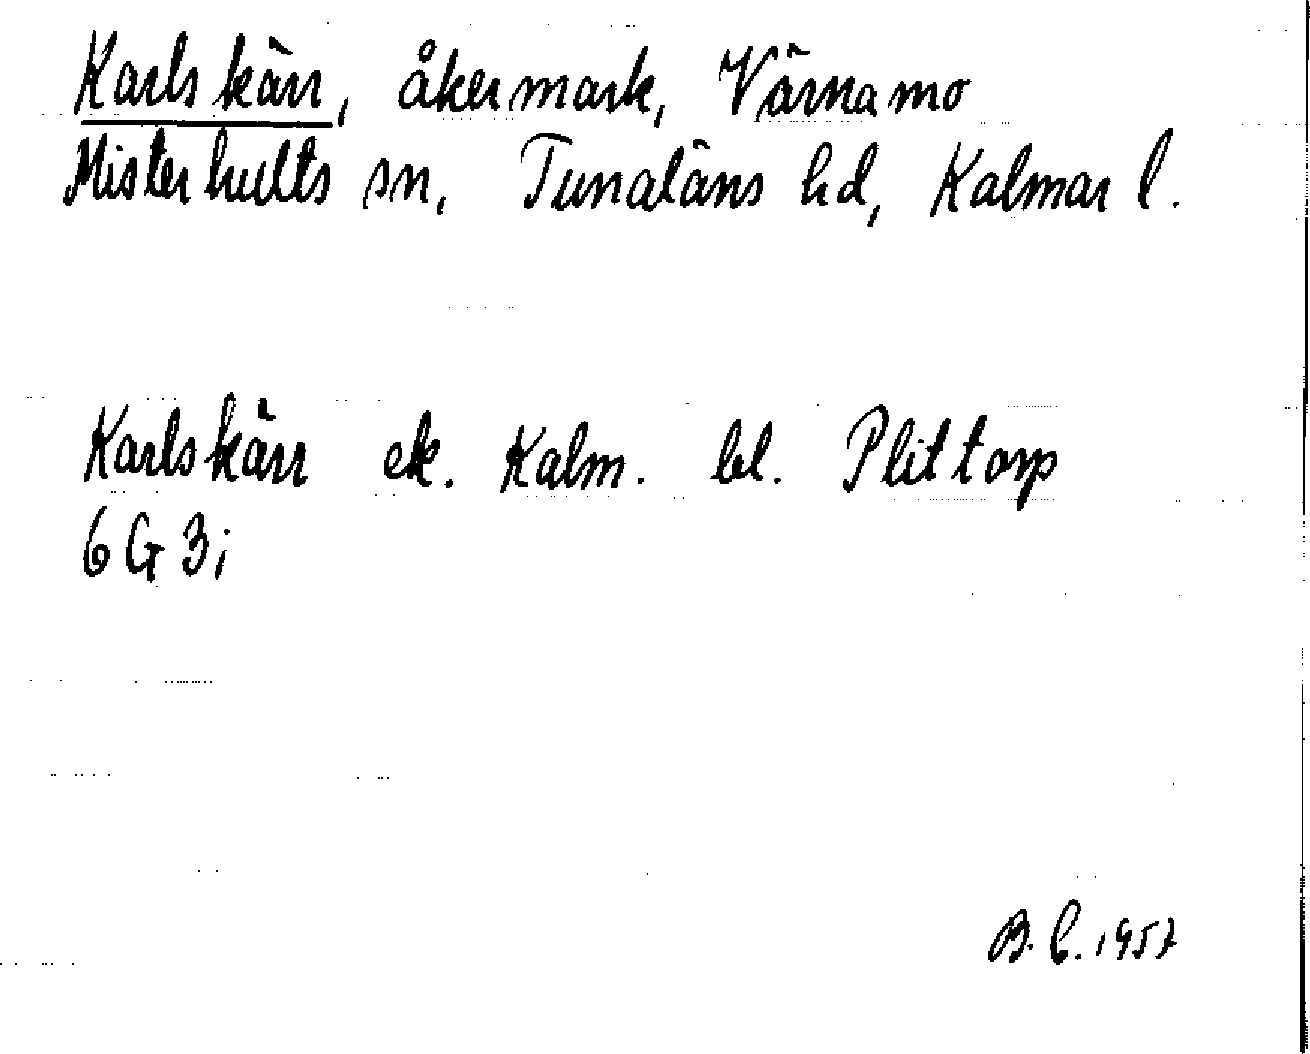 Karlskärr, åkermark, Värnamo
Misterhults sn, Tunaläns hd, Kalmar l.
Karlskärr ek. Kalm. bl. Plittorp
6G3i
B.C. 1957